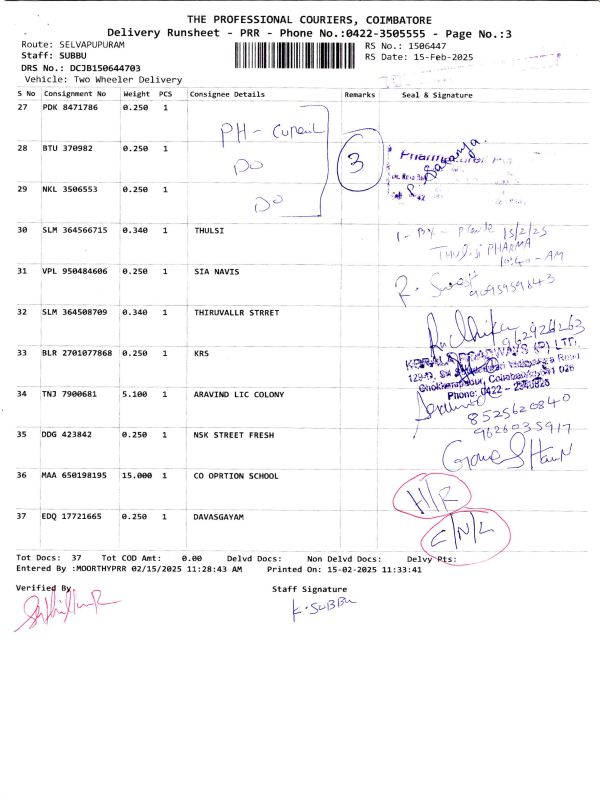 THE PROFESSIONAL COURIERS, COIMBATORE
Delivery Runsheet - PRR - Phone No.:0422-3505555 - Page No.:3
Route: SELVAPUPURAM RS No.: 1506447
Staff: SUBBU RS Date: 15-Feb-2025
DRS No.: DCJB150644703
Vehicle: Two Wheeler Delivery
S No Consignment No Weight PCS Consignee Details Remarks Seal & Signature
27 PDK 8471786 0.250 1
PH -
28 BTU 370982 0.250 1 DO 3
29 NKL 3506553 0.250 1 DO
30 SLM 364566715 0.340 1 THULSI 15/2/25
PHARMA
10:40 - AM
31 VPL 950484606 0.250 1 SIA NAVIS
32 SLM 364508709 0.340 1 THIRUVALLR STRREET
33 BLR 2701077868 0.250 1 KRS
Phone: 0422 -
34 TNJ 7900681 5.100 1 ARAVIND LIC COLONY
8525620840
35 DDG 423842 0.250 1 NSK STREET FRESH 9626035917
36 MAA 650198195 15.000 1 CO OPRTION SCHOOL H/R
37 EDQ 17721665 0.250 1 DAVASGAYAM C/N/L
Tot Docs: 37 Tot COD Amt: 0.00 Delvd Docs: Non Delvd Docs: Delvy Pts:
Entered By :MOORTHYPRR 02/15/2025 11:28:43 AM Printed On: 15-02-2025 11:33:41
Verified By Staff Signature
K. SUBBU